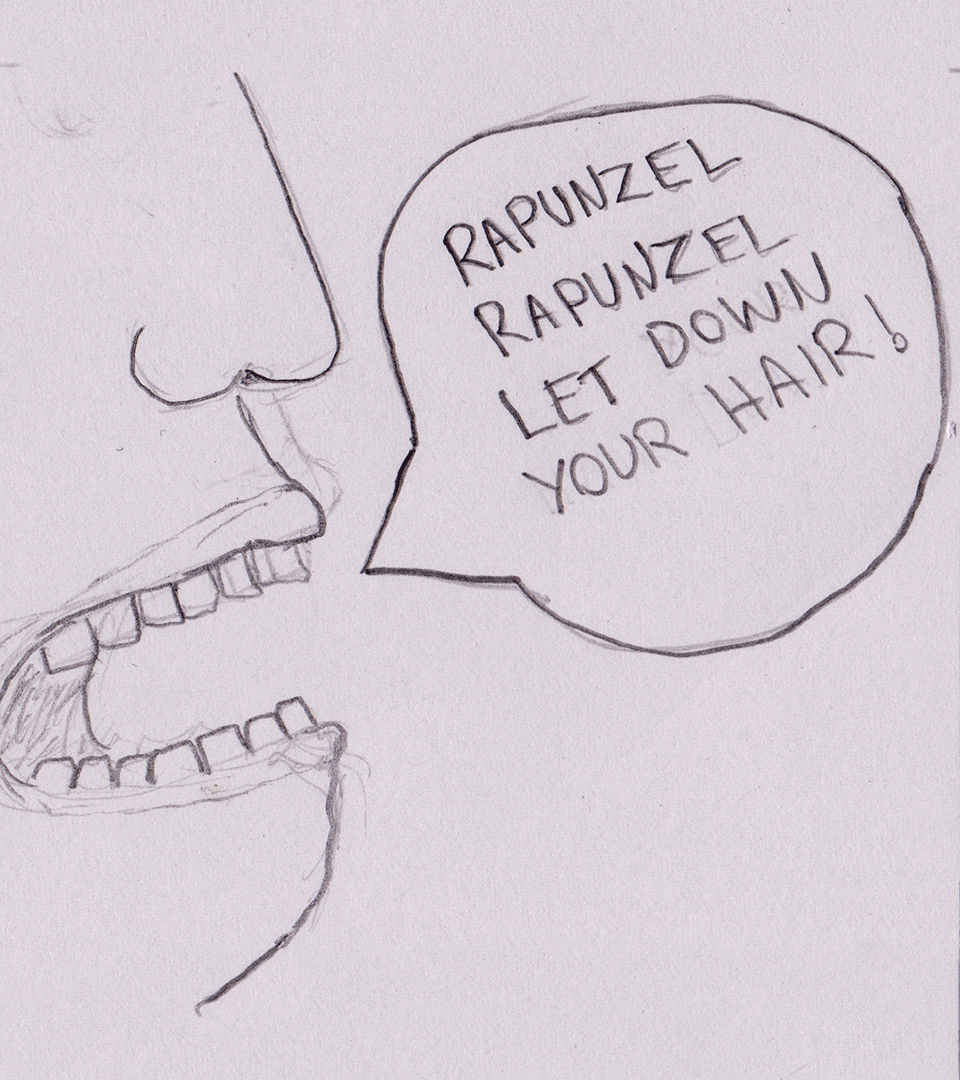 RAPUNZEL
RAPUNZEL
LET DOWN
YOUR HAIR!